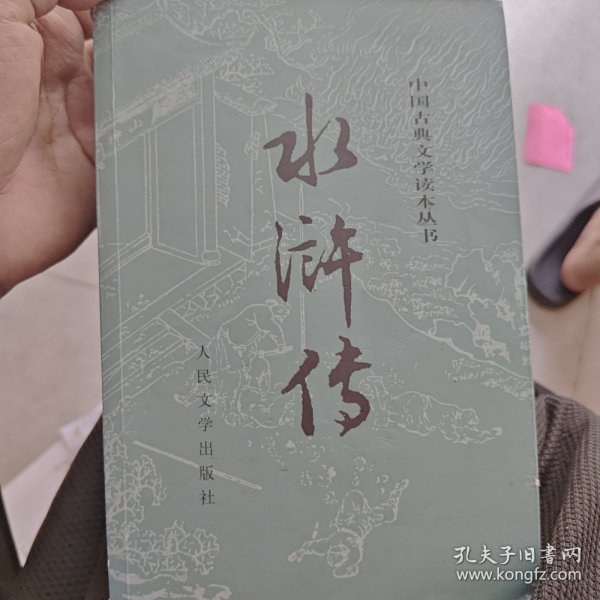 中国古典文学读本丛书
水浒传
人民文学出版社
孔夫子旧书网
www.kongfz.com